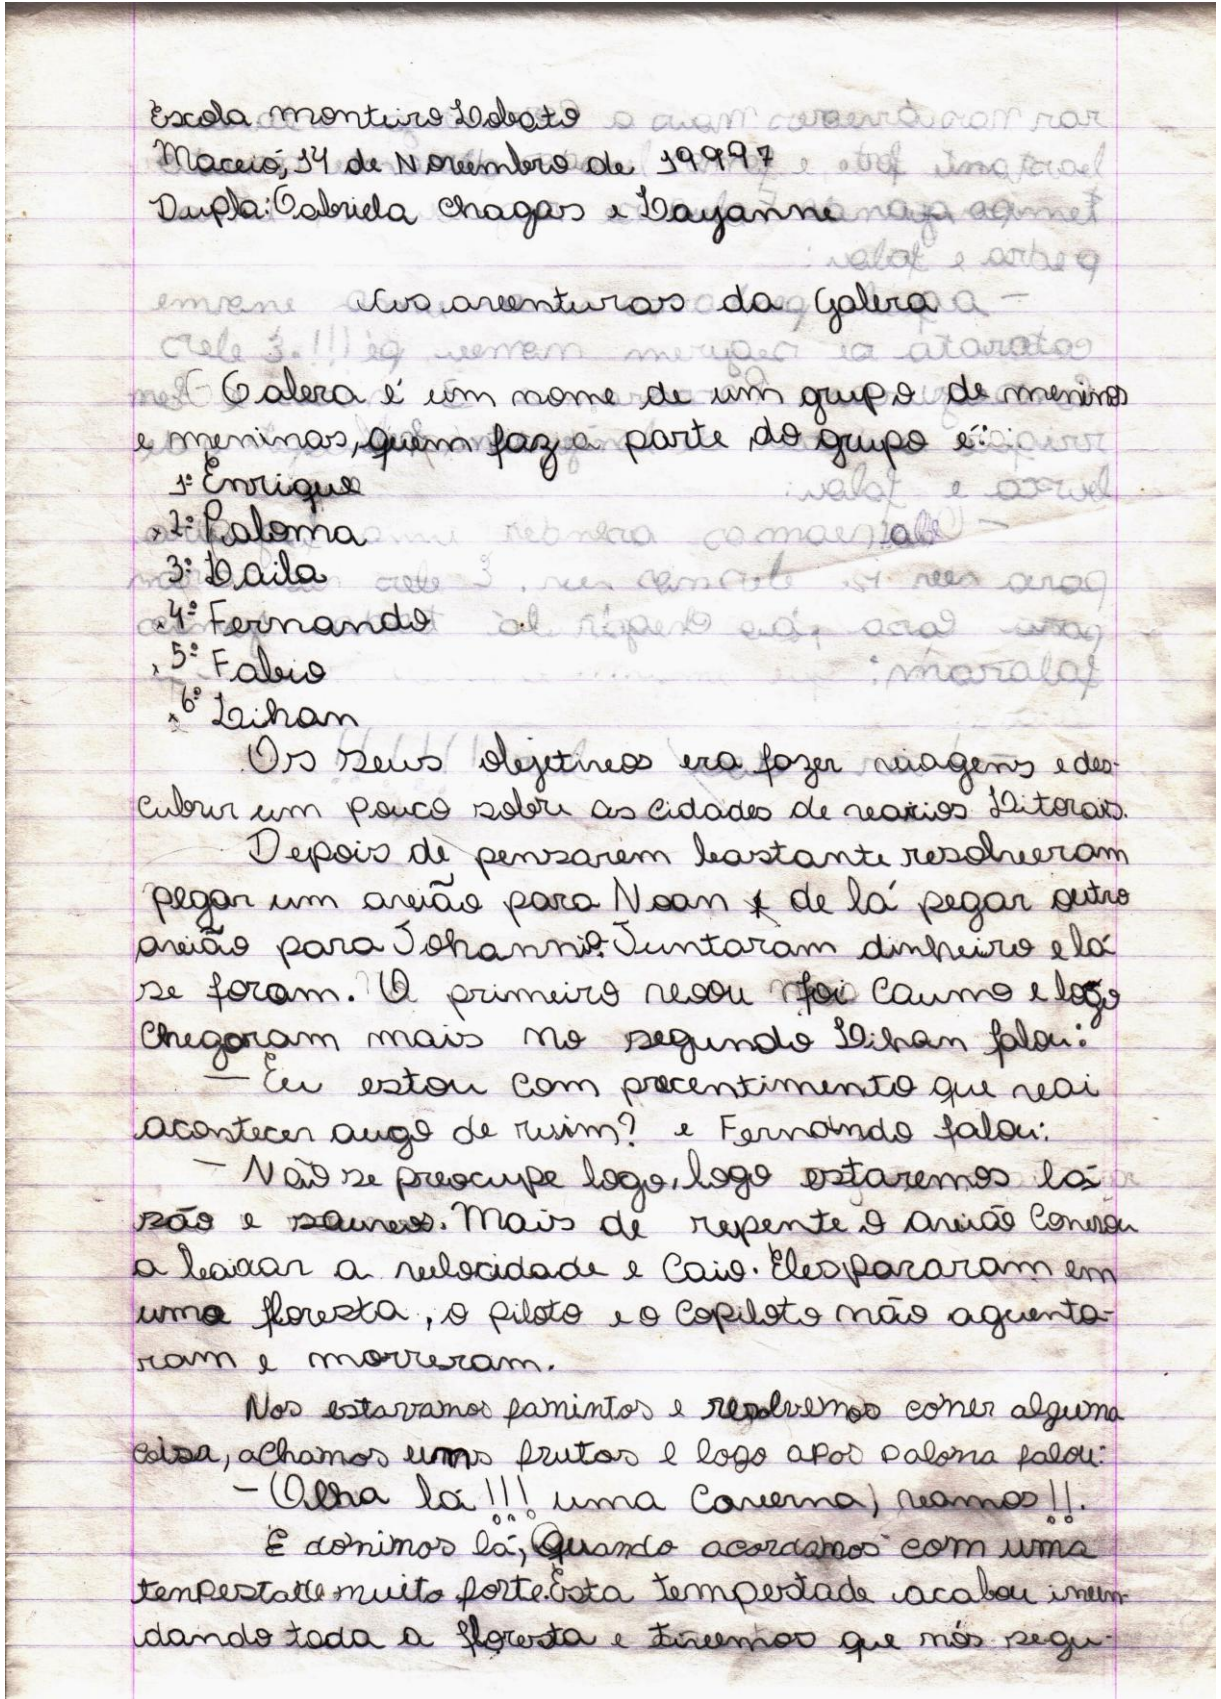 Escola Monteiro Lobato
Maceió, 14 de Novembro de 19997
Dupla: Gabriela Chagas e Dayanne
As aventuras da Galera
Galera é um nome de um grupo de meninos
e meninas, quem faz a parte do grupo é:
1º Enrique
2º Paloma
3º Laila
4º Fernando
5º Fabio
6º Lihan
Os seus objetivos era fazer viagens e des-
cubrir um pouco sobre as cidades de varios Litorais.
Depois de pensarem bastante resolveram
pegar um avião para Noan e de lá pegar outro
avião para Johanni. Juntaram dinheiro e lá
se foram. O primeiro voou foi Caumo e logo
chegaram mais no segundo Lihan falou:
— Eu estou com precentimento que vai
acontecer augo de ruim? e Fernando falou:
— Não se preocupe logo, logo estaremos lá
são e sauvos. Mais de repente o avião Conesou
a baixar a velocidade e Caio. Eles pararam em
uma floresta, o piloto e o Copiloto não aguenta-
ram e morreram.
Nos estavamos famintos e resolvemos comer alguma
coisa, achamos uns frutos e logo apos Paloma falou:
— Olha lá!!! uma Caverna, vamos!!.
E dorimos lá, Quando acordamos com uma
tempestade muito forte. Esta tempestade acabou inum-
dando toda a floresta e tivemos que nós segu-